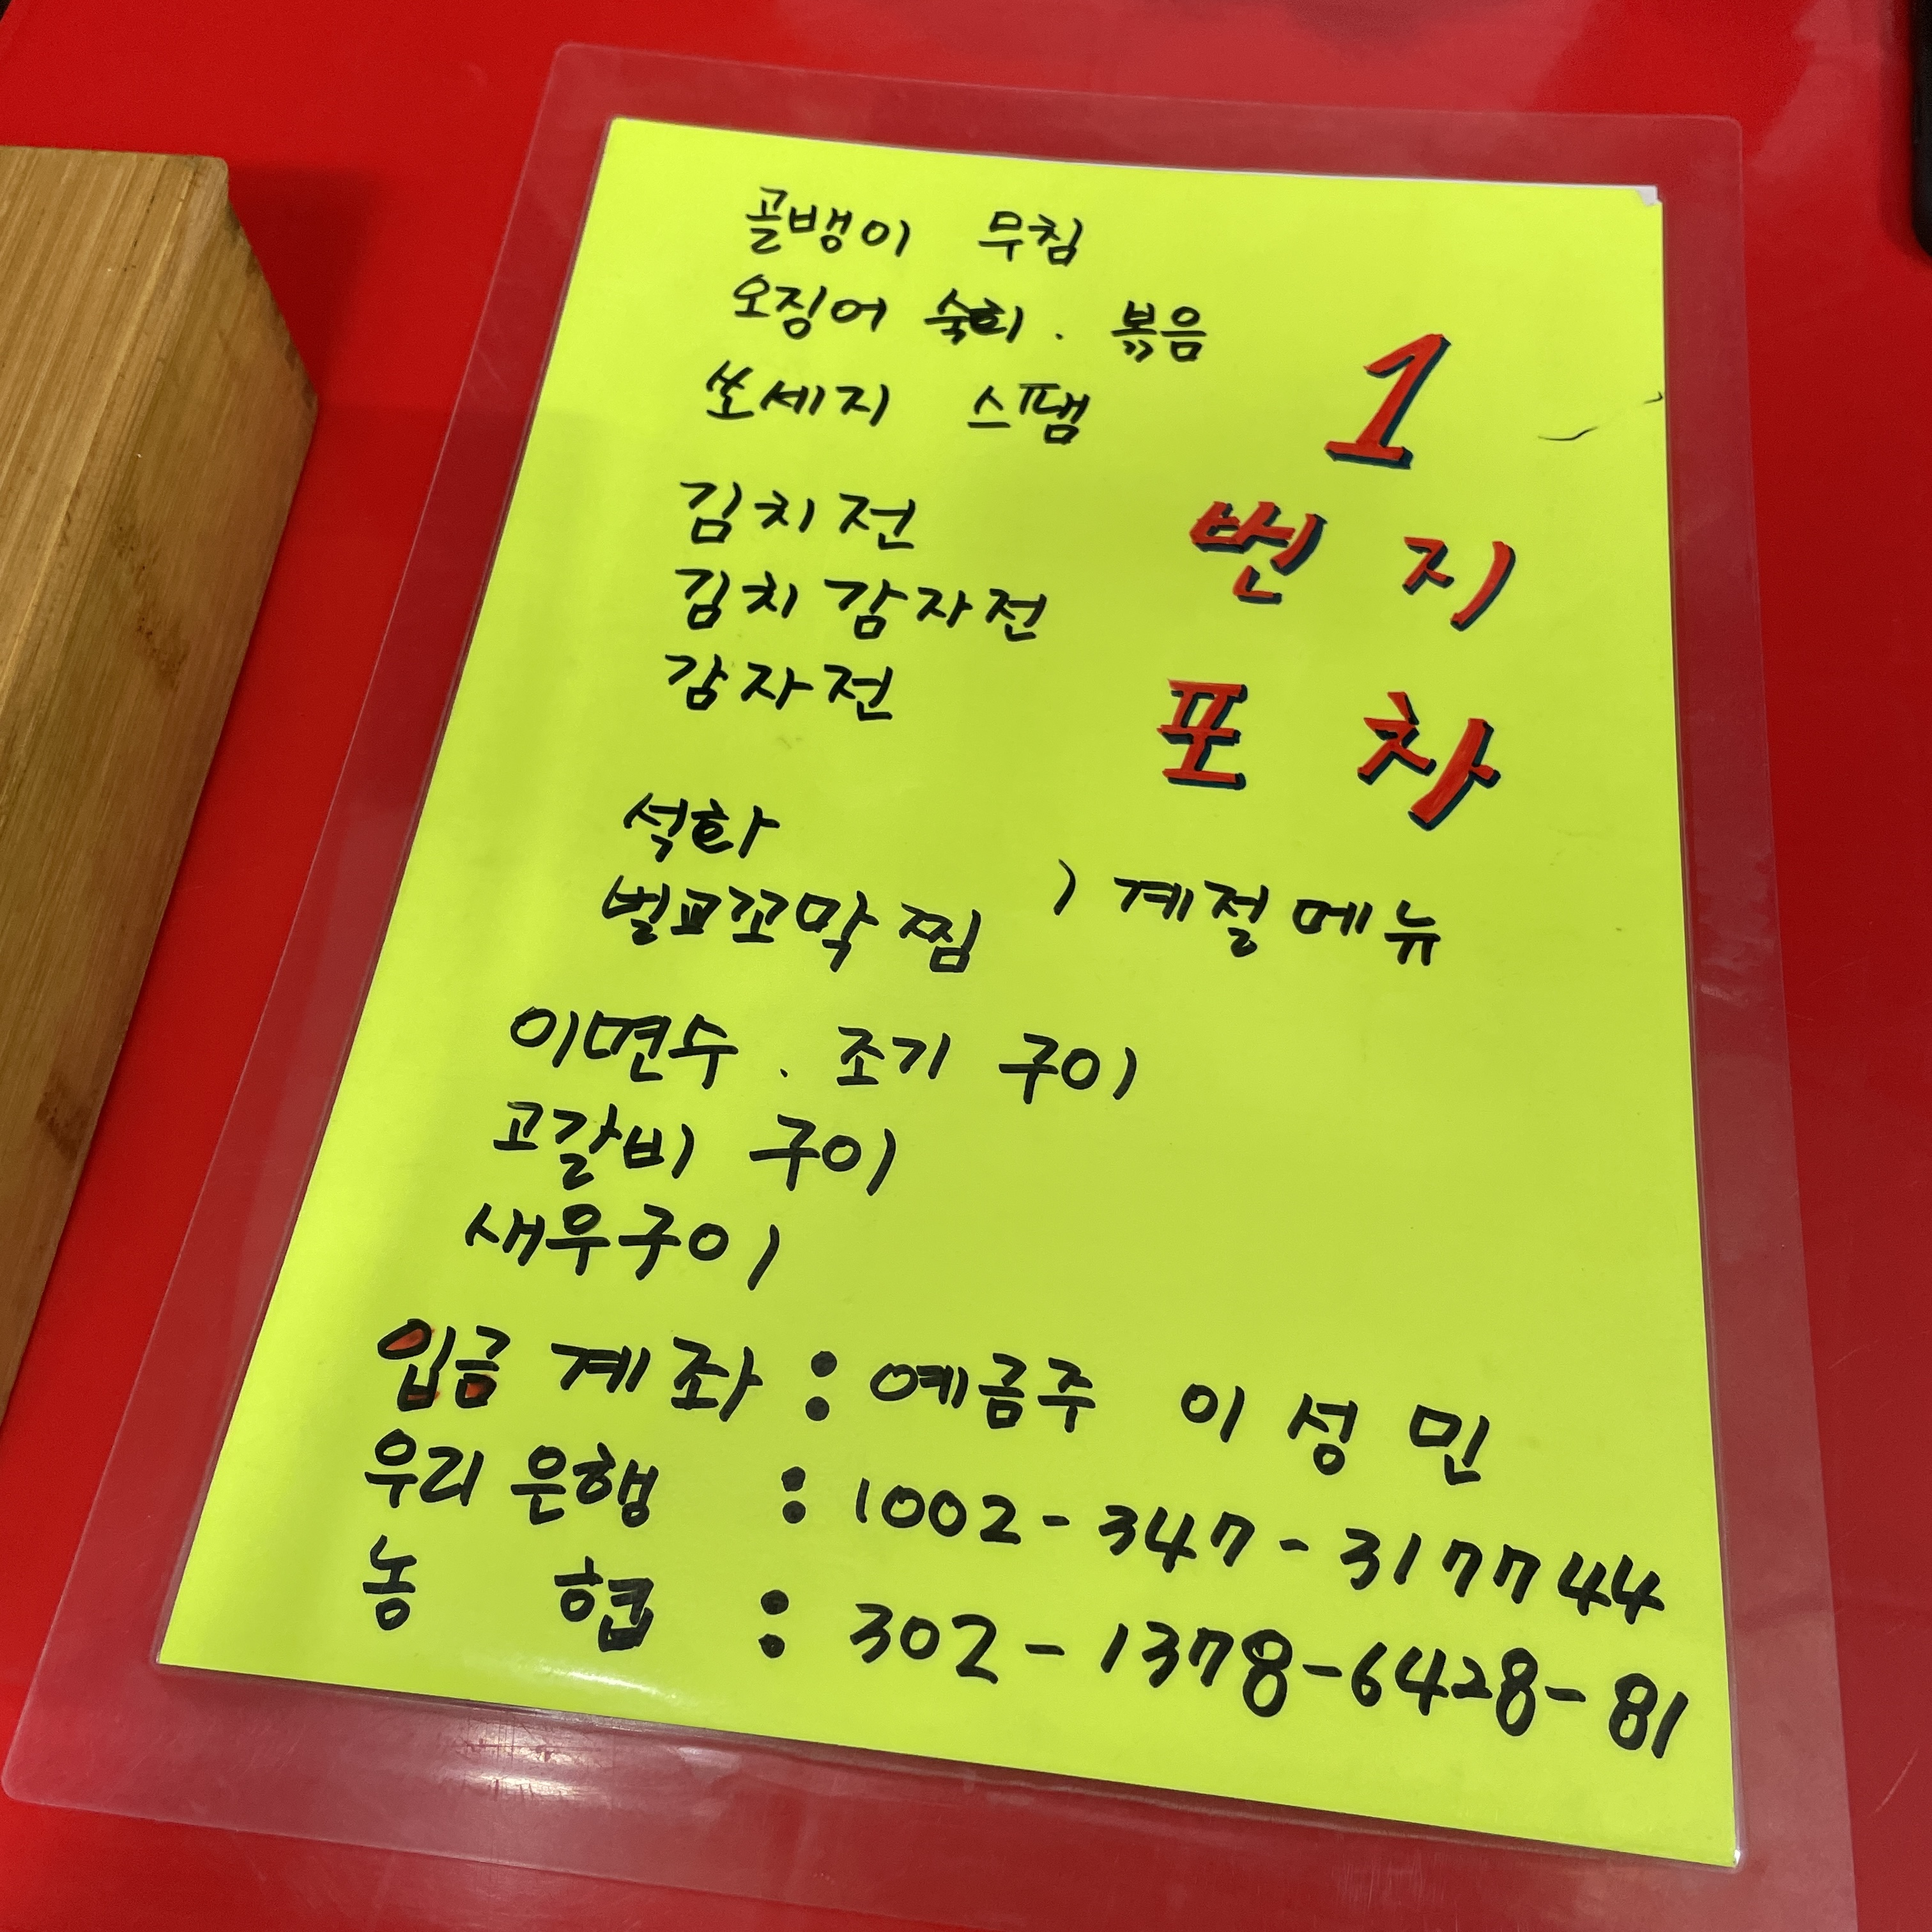 골뱅이 무침
오징어 숙회 . 볶음
쏘세지 스팸
1
번지
포차
김치전
김치감자전
감자전
석화
벌교꼬막찜
) 계절메뉴
이면수 . 조기 구이
고갈비 구이
새우구이
입금 계좌 : 예금주 이성민
우리은행 : 1002-347-317744
농협 : 302-1378-6428-81